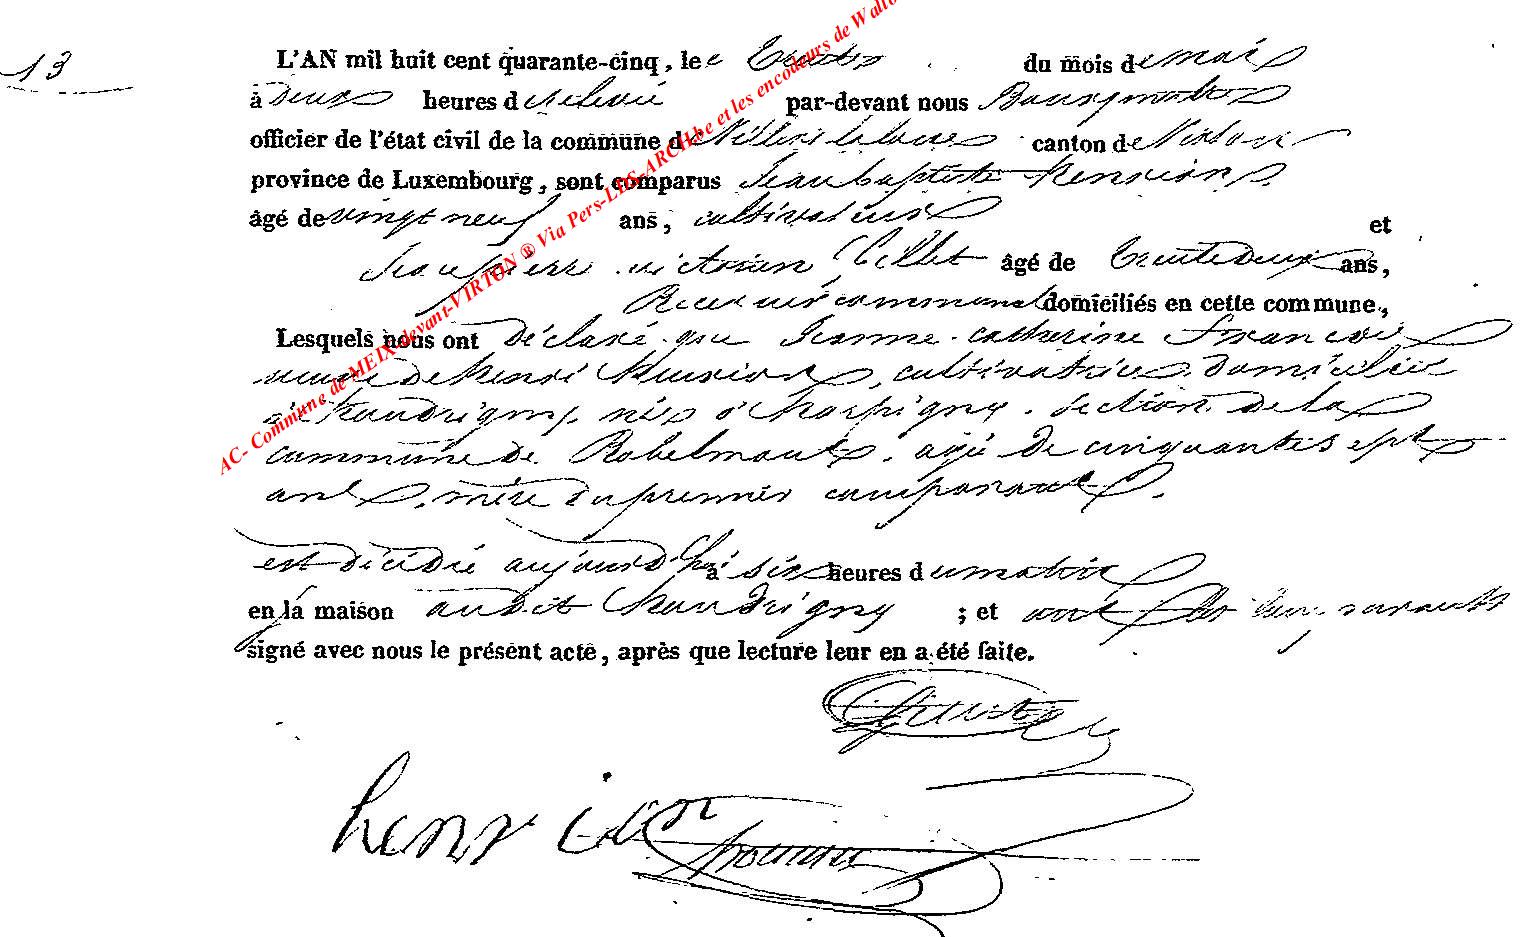 13
L'AN mil huit cent quarante-cinq, le trente du mois de mai
à deux heures de relevée par-devant nous Bourgmestre
officier de l'état civil de la commune de Villers la loue canton de Virton
province de Luxembourg, sont comparus Jean baptiste henrion
âgé de vingt neuf ans, cultivateur et
Jean pierre victorien âgé de trente deux ans,
Receveur communal domiciliés en cette commune,
Lesquels nous ont déclaré que Jeanne catherine François
veuve de henri henrion, cultivatrice domiciliée
à houdrigny, née à harpigny, section de la
commune de Robelmont, agée de cinquante sept
ans, mère du premier comparant.
est décédée aujourd'hui à six heures du matin
en la maison audit houdrigny ; et ont les
signé avec nous le présent acte, après que lecture leur en a été faite.
henrion
AC- Commune de MEIX-devant-VIRTON ® Via Pers-LDS-ARCH.be et les encodeurs de Wallo